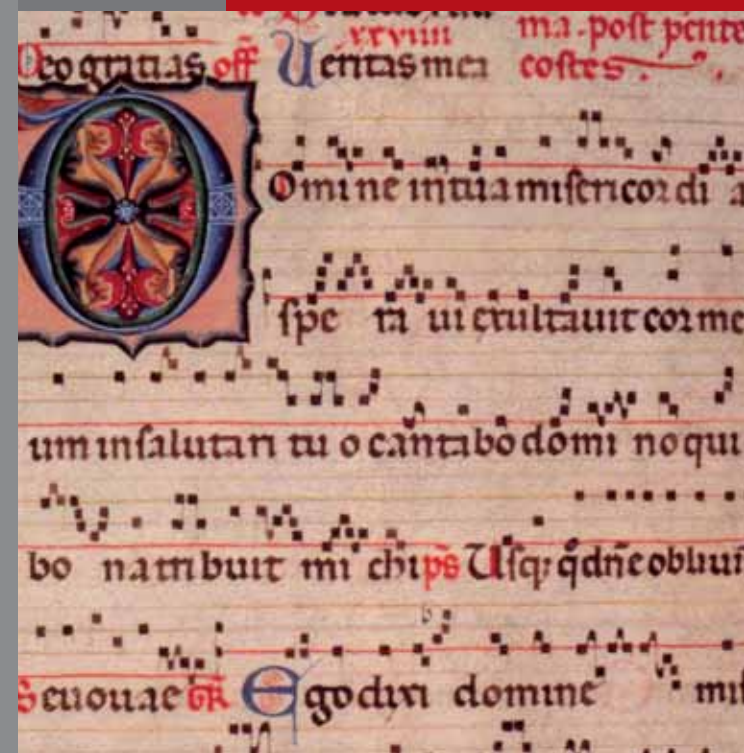 ma. poſt pente
Deo gratias off Ueritas mea coſtes.
Omine in tua miſericordi a
ſpe ra ui exultauit cor me
um in ſalutari tu o cantabo domi no qui
bo na tribuit mi chi ps Uſq; qd dñe obliui
Seuouae gr Ego dixi domine miſ